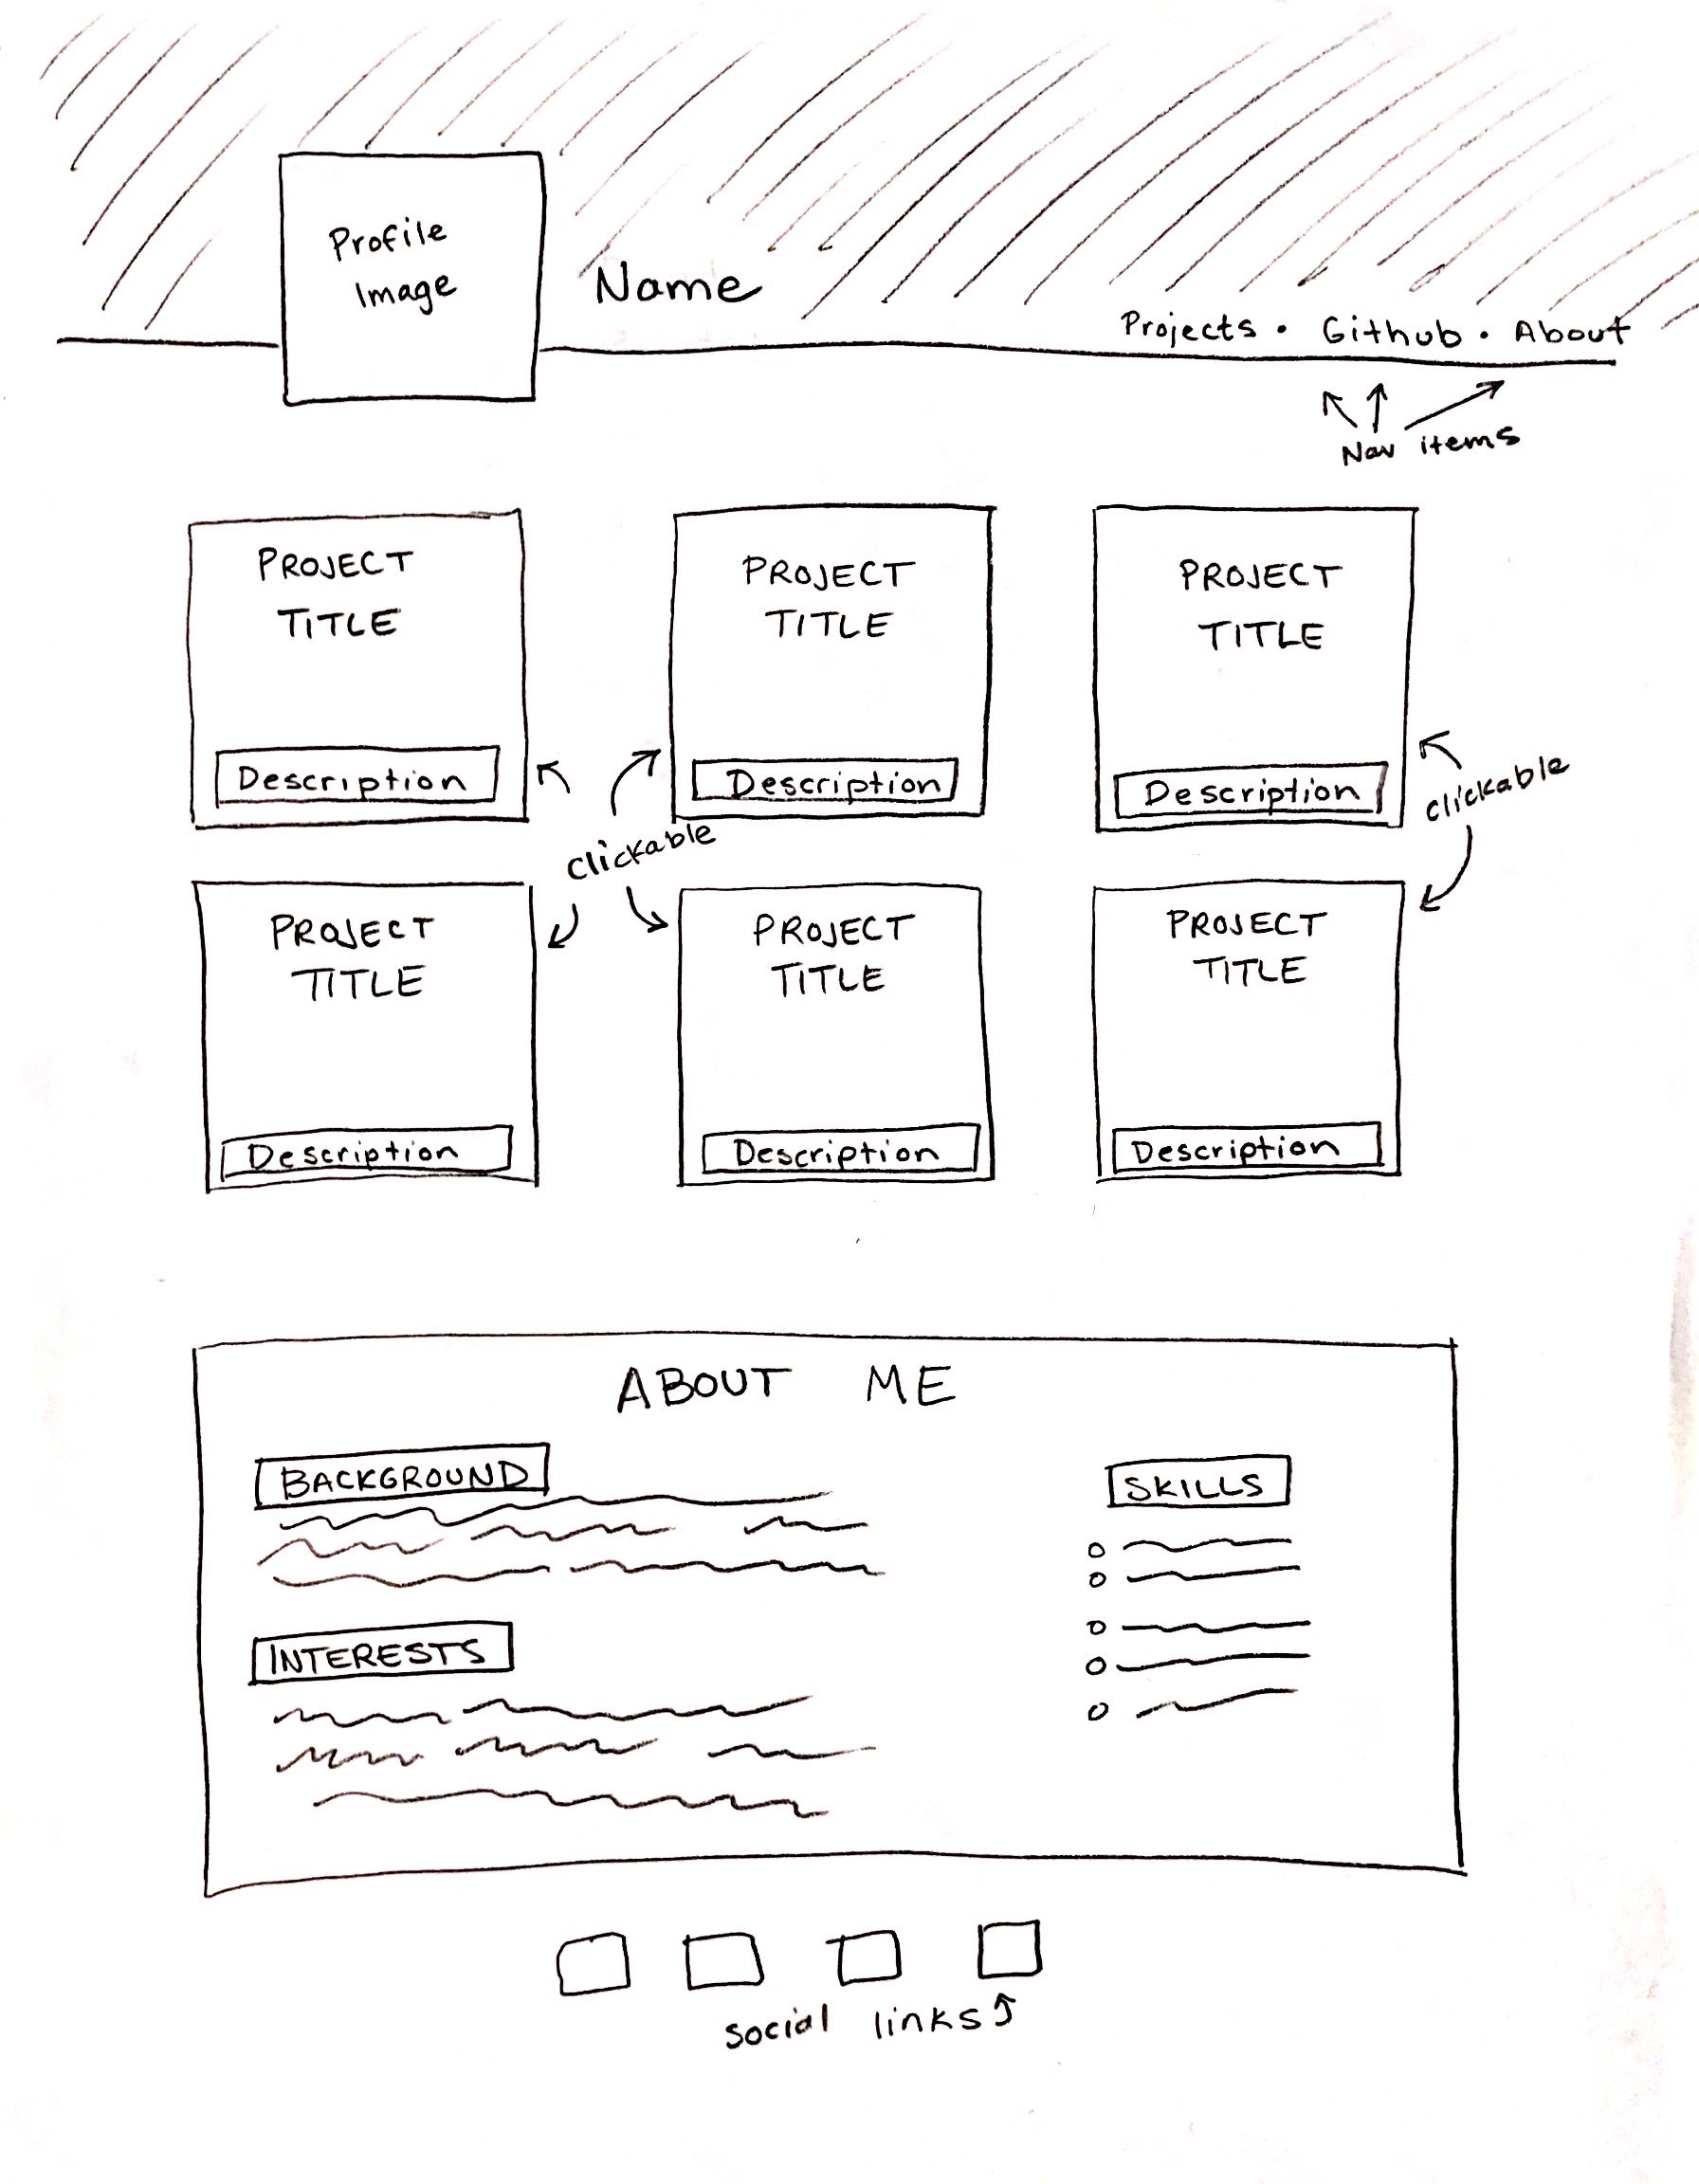 Profile
Image
Name
Projects • Github • About
Nav items
PROJECT
TITLE
Description
PROJECT
TITLE
Description
PROJECT
TITLE
Description
clickable
clickable
PROJECT
TITLE
Description
PROJECT
TITLE
Description
PROJECT
TITLE
Description
ABOUT ME
BACKGROUND
INTERESTS
SKILLS
social links